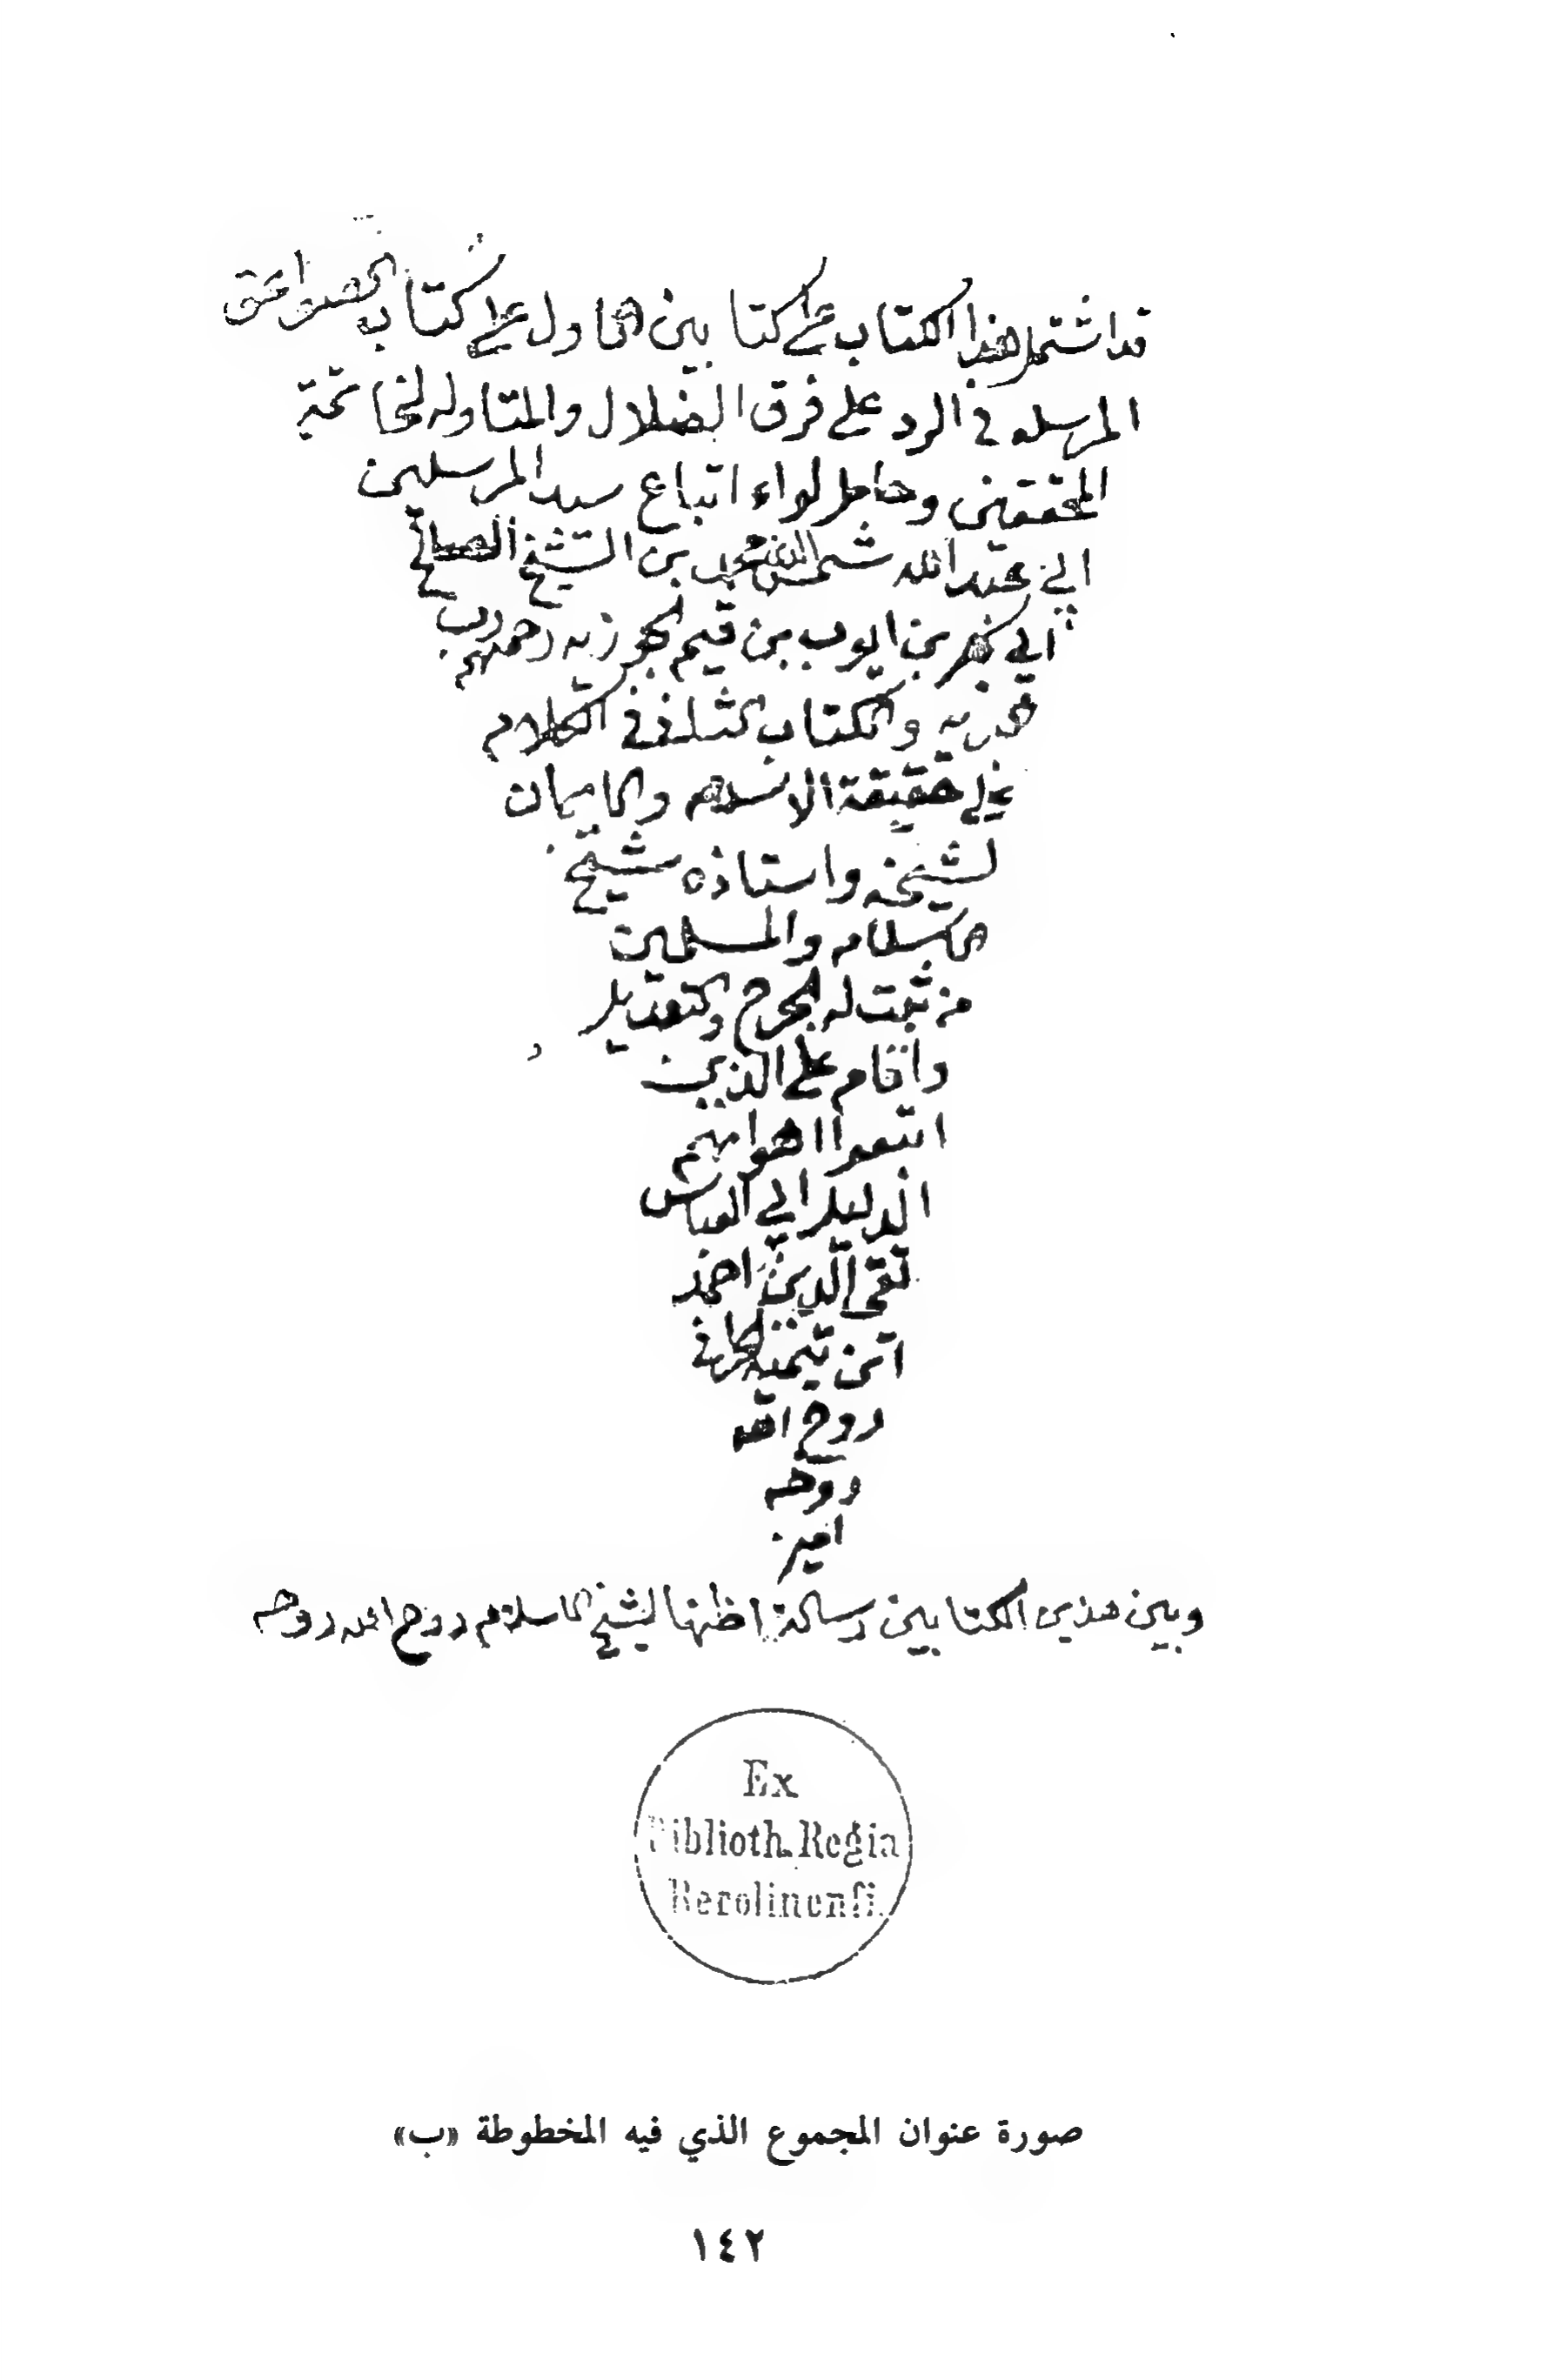 قد اشتمل هذا الكتاب على كتابين الاول على كتاب الصواعق
المرسله في الرد على فرق الضلال والمتاوله لخاتمة
المحققين وحامل لواء اتباع سيد المرسلين
ابي عبد الله شمس الدين محمد بن الشيخ الصالح
ابي بكر بن ايوب بن قيم الجوزيه رحمهم رب
البريه والكتاب الثاني في الكلام
على حقيقة الاسلام والايمان
لشيخه واستاذه شيخ
الاسلام والمسلمين
من ثبت له الجرح والتعديل
واقام على الذين
اتبعوا اهوائهم
الدليل ابي العباس
تقي الدين احمد
ابن تيميه الحراني
روح الله
روحه
امين
وبين هذين الكتابين رسالة اظنها لشيخ الاسلام روح الله روحه
Ex
Biblioth. Regia
Berolinensi.
صورة عنوان المجموع الذي فيه المخطوطة «ب»
١٤٢